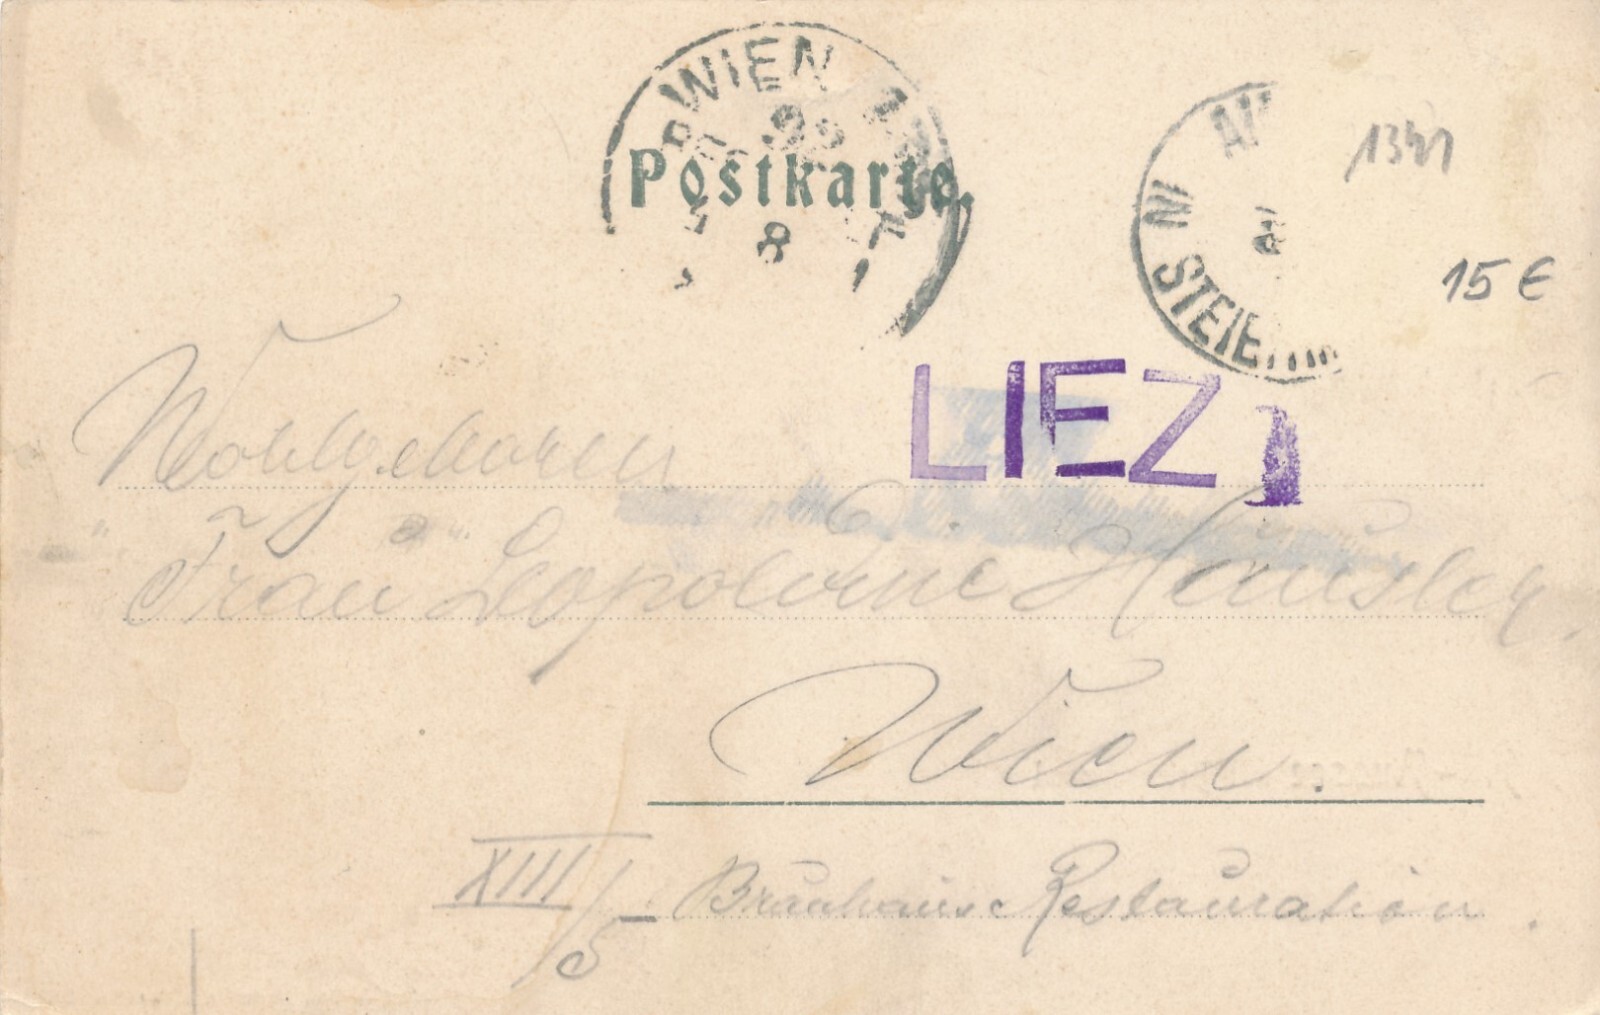 WIEN
8
Postkarte.
IN
STEIE
1341
15 €
LIEZ
Wohlgeboren
Frau Leopoldine Häusler.
Wien.
XIII/5 Brauhaus Restauration.